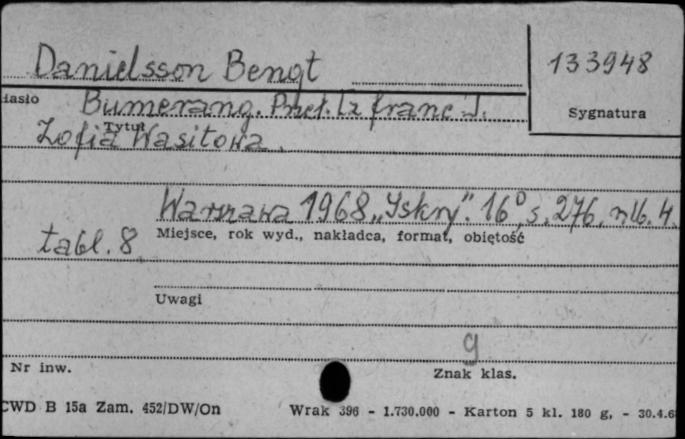 Danielsson Bengt
133948
iasło
Bumerang. Przeł. [z franc.].
Sygnatura
Tytuł
Zofia Wasitowa.
Warszawa 1968 „Iskry". 16°, s. 276, nlb. 4.
tabl. 8
Miejsce, rok wyd., nakładca, format, objętość
Uwagi
g
Nr inw.
Znak klas.
CWD B 15a Zam. 452/DW/On
Wrak 396 - 1.730.000 - Karton 5 kl. 180 g, - 30.4.6